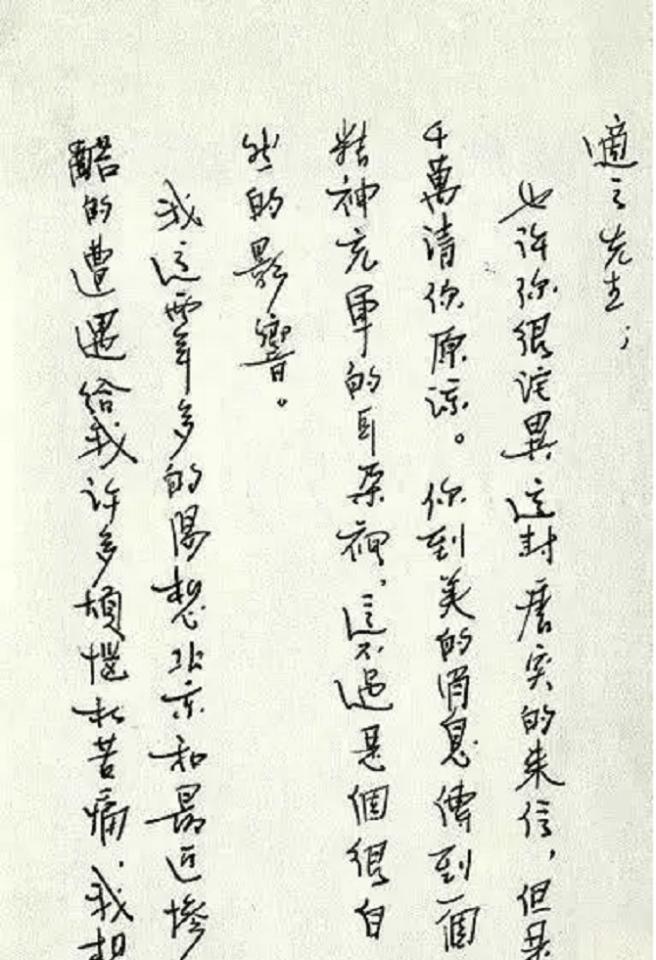 適之先生；
也许你很詫異這封唐突的来信，但是
千萬清你原谅。你到美的消息傳到一個
精神充軍的耳朵裡，這不過是個很自
然的影響。
我這両年多的渴想北京和最近惨
酷的遭遇给我许多煩惱和苦痛、我想